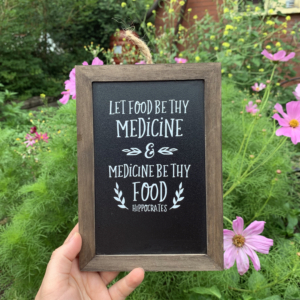 LET FOOD BE THY
MEDICINE
&
MEDICINE BE THY
FOOD
HIPPOCRATES